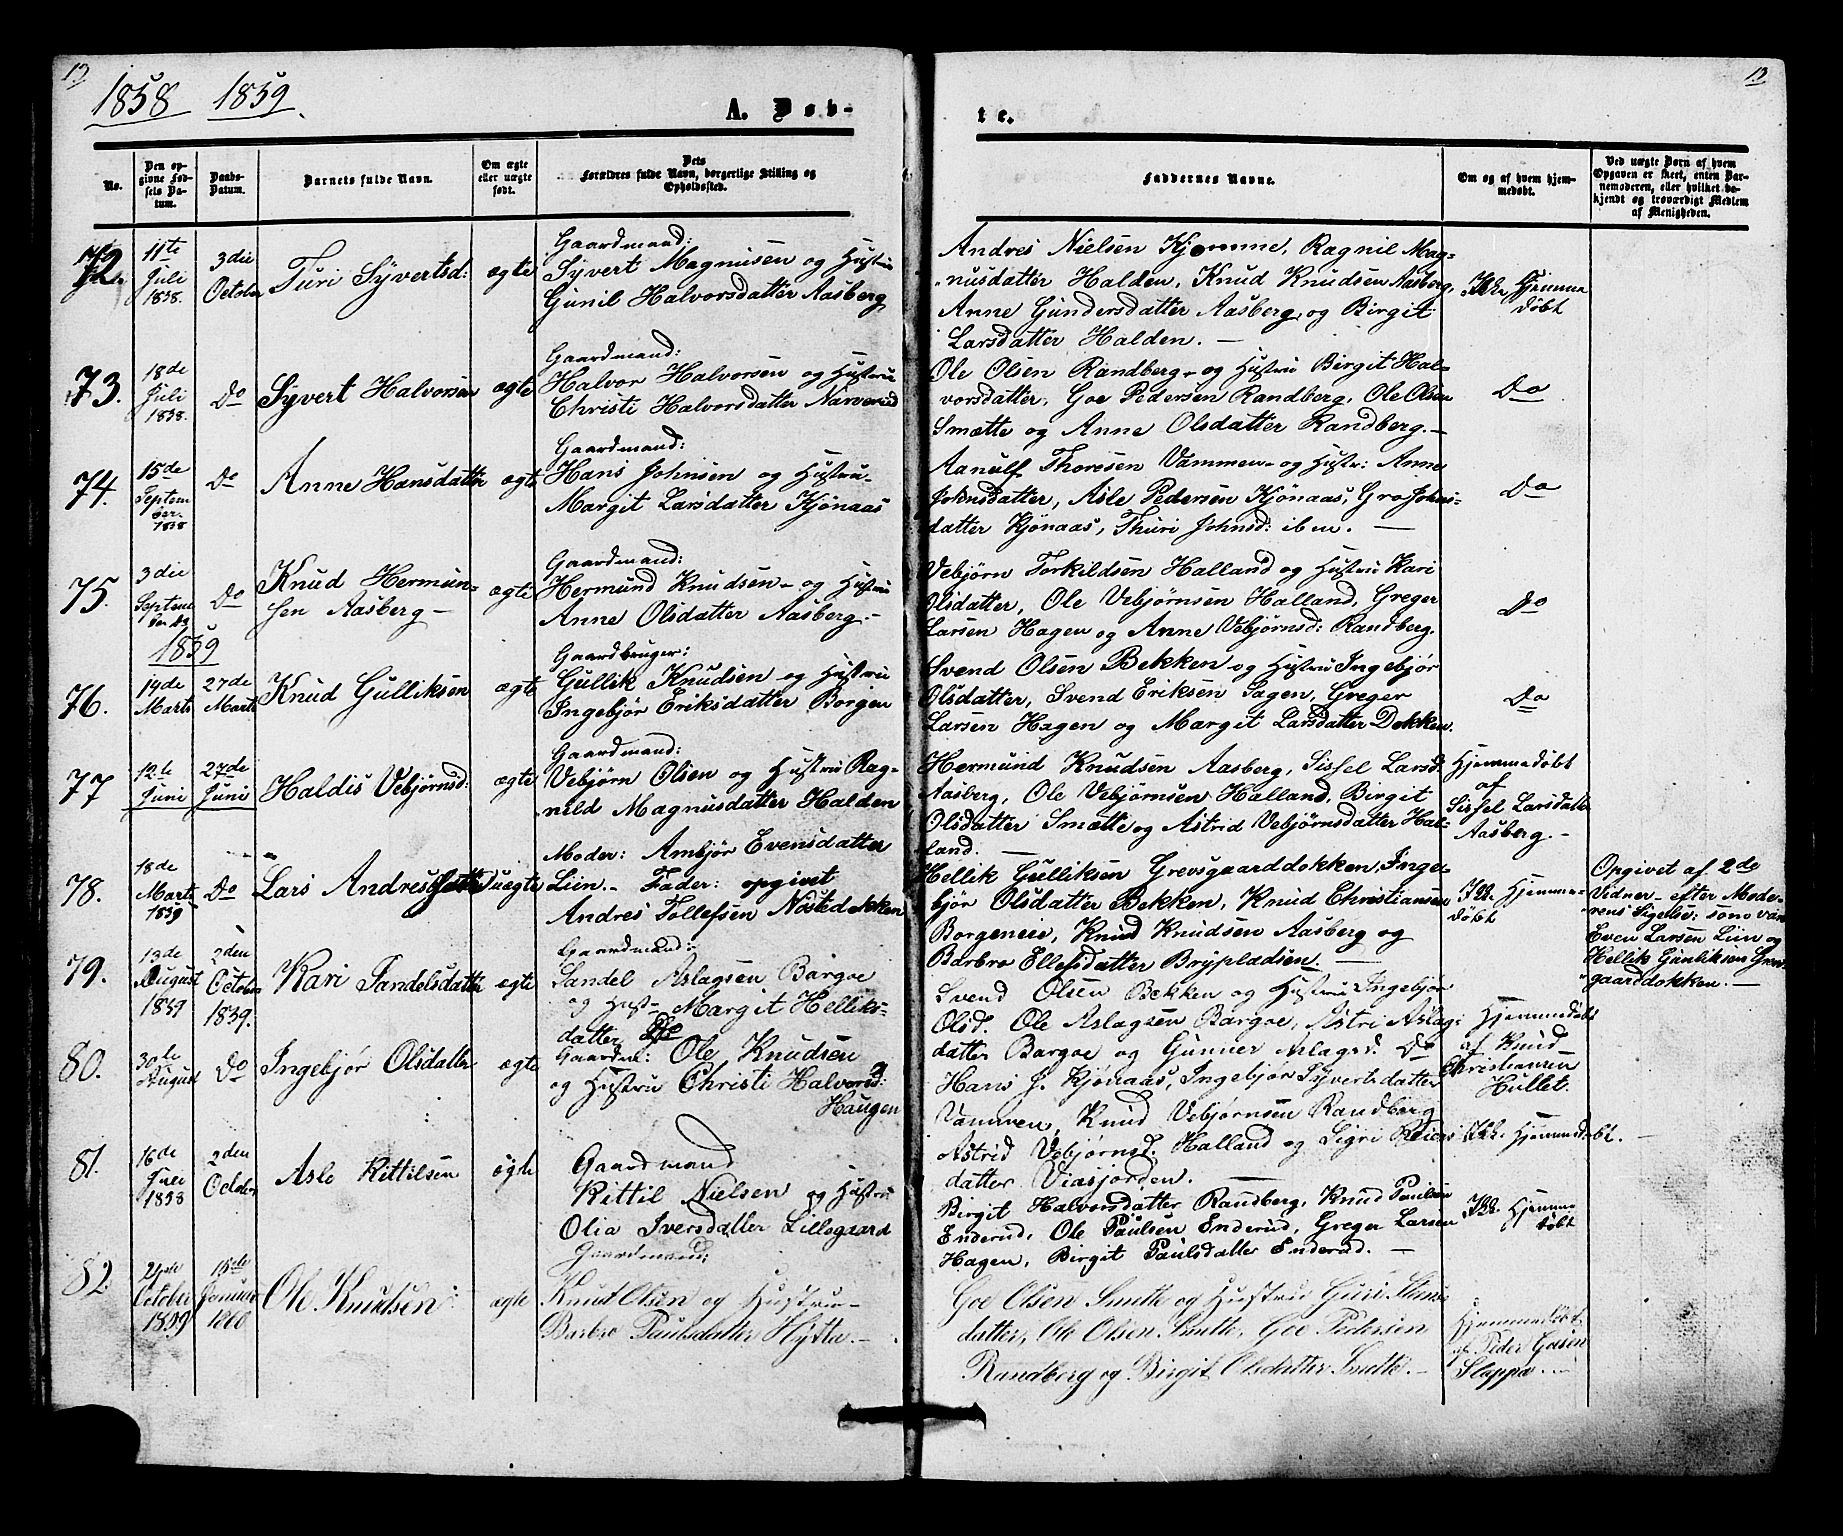 13
1858 1859
A. Døb-
te.
13
No.
Den opgivne Fødsels Datum.
Daabs-Datum.
Barnets fulde Navn.
Om ægte eller uægte født.
Dets Forældres fulde Navn, borgerlige Stilling og Opholdssted.
Faddernes Navne.
Om og af hvem hjemmedøbt.
Ved uægte Børn af hvem Opgaven er skeet, enten Barnemoderen, eller hvilket bekjendt og troværdigt Medlem af Menigheden.
72. 11te Juli 1858. 3die October Turi Syvertsd: ægte
Gaardmand:
Syvert Magnusen og Hustru
Gunil Halvorsdatter Aasberg,
Andres Nielsen Kjomme, Ragnil Mag-
nusdatter Halden, Knud Knudsen Aasberg,
Anne Gundersdatter Aasberg, og Birgit
Larsdatter Halden. —
Ikke Hjemme
døbt
73. 18de Juli 1858. Do Syvert Halvorsen ægte
Gaardmand:
Halvor Halvorsen og Hustru
Christi Halvorsdatter Narverud
Ole Olsen Randberg, og Hustru Birgit Hal-
vorsdatter, Goe Pedersen Randberg, Ole Olsen
Smætte og Anne Olsdatter Randberg. —
Do
74. 15de Septem ber. 1858 Do Anne Hansdatter ægte
Gaardmand:
Hans Johnsen og Hustru
Margit Larsdatter Kjönaas
Aanulf Thoresen Vammen og Hustr: Anne
Johnsdatter, Asle Pedersen Kjönaas, Gro Johns-
datter Kjönaas, Thuri Johnsd: iben. —
Do
75. 3die Septem Do Knud Hermun-
sen Aasberg — ægte
Gaardmand:
Hermund Knudsen og Hustru
Anne Olsdatter Aasberg. —
Vebjørn Torkildsen Halland og Hustru Kari
Olsdatter, Ole Vebjørnsen Halland, Greger
Larsen Hagen og Anne Vebjørnsd: Randberg.
Do
1859
76. 14de Marts 27de Marts Knud Gulliksen ægte
Gaardbruger:
Gullik Knudsen og Hustru
Ingebjør Eriksdatter Borgen
Svend Olsen Bekken og Hustru Ingebjør
Olsdatter, Svend Eriksen Sagen, Greger
Larsen Hagen og Margit Larsdatter Dokken.
Do
77 12te Juni 27de Juni Haldis Vebjørnsd: ægte
Gaardmand:
Vebjørn Olsen og Hustru Rag-
nild Magnusdatter Halden
Hermund Knudsen Aasberg, Sissel Larsd:
Aasberg, Ole Vebjørnsen Halland, Birgit
Olsdatter Smætte og Astrid Vebjørnsdatter Hal-
land. —
Hjemmedøbt
af
Sissel Larsdatter
Aasberg. —
78. 18de Marts 1859 Do Lars Andres uægte
Moder: Ambjør Evensdatter
Liin. Fader: opgivet
Andres Tollefsen Nostedokken
Hellik Gulliksen Grevsgaarddokken, Inge-
bjør Olsdatter Bekken, Knud Christiansen
Borgeneie, Knud Knudsen Aasberg og
Barbro Ellefsdatter Brypladsen. —
Ikk. Hjemme-
døbt
Opgivet af 2de
Vidner efter Mode-
rens Sigelse: som var
Even Larsen Liin og
Hellik Gunliksen Grevs-
gaarddokken. —
79. 13de August 1859 2den October 1859. Kari Sandelsdatter ægte
Gaardmand:
Sandel Aslagsen Bargoe
og Hust. Margit Helliks-
datter
Svend Olsen Bekken og Hustru Ingebjør
Olsd. Ole Aslagsen Bargoe, Astri Aslag:
datter Bargoe og Gunner Aslagsd. Do
Hjemmedøbt
af Knud
Christiansen
Hullet.
80. 30te August Do Ingebjør Olsdatter ægte
Gaardm: Ole Knudsen
og Hustru Christi Halvorsd:
Haugen
Hans J. Kjønaas, Ingebjør Syvertsdatter
Vammen, Knud Vebjørnsen Randberg
Astrid Vebjørnsd. Halland og Sigri Reiers
datter Viasjorden. —
Ikk. Hjemmedøbt. —
81. 16de Juli 1858 2den October Asle Kittilsen ægte
Gaardmand
Kittil Nielsen og Hustru
Olia Iversdatter Lillegaard
Birgit Halvorsdatter Randberg, Knud Paulsen
Enderud, Ole Paulsen Enderud, Greger Larsen
Hagen, Birgit Paulsdatter Enderud. —
Ikk. Hjemme
døbt
82. October 1859 Januar 1860 Ole Knudsen ægte
Gaardmand:
Knut Olsen og Hustru
Barbro Paulsdatter Hytta. —
Goe Olsen Smette og Hustru Guri
datter, Ole Olsen Smette, Goe Pedersen
Randberg og Birgit Olsdatter Smette. —
Hjemmedøbt
af Peder Goesen
Slappa